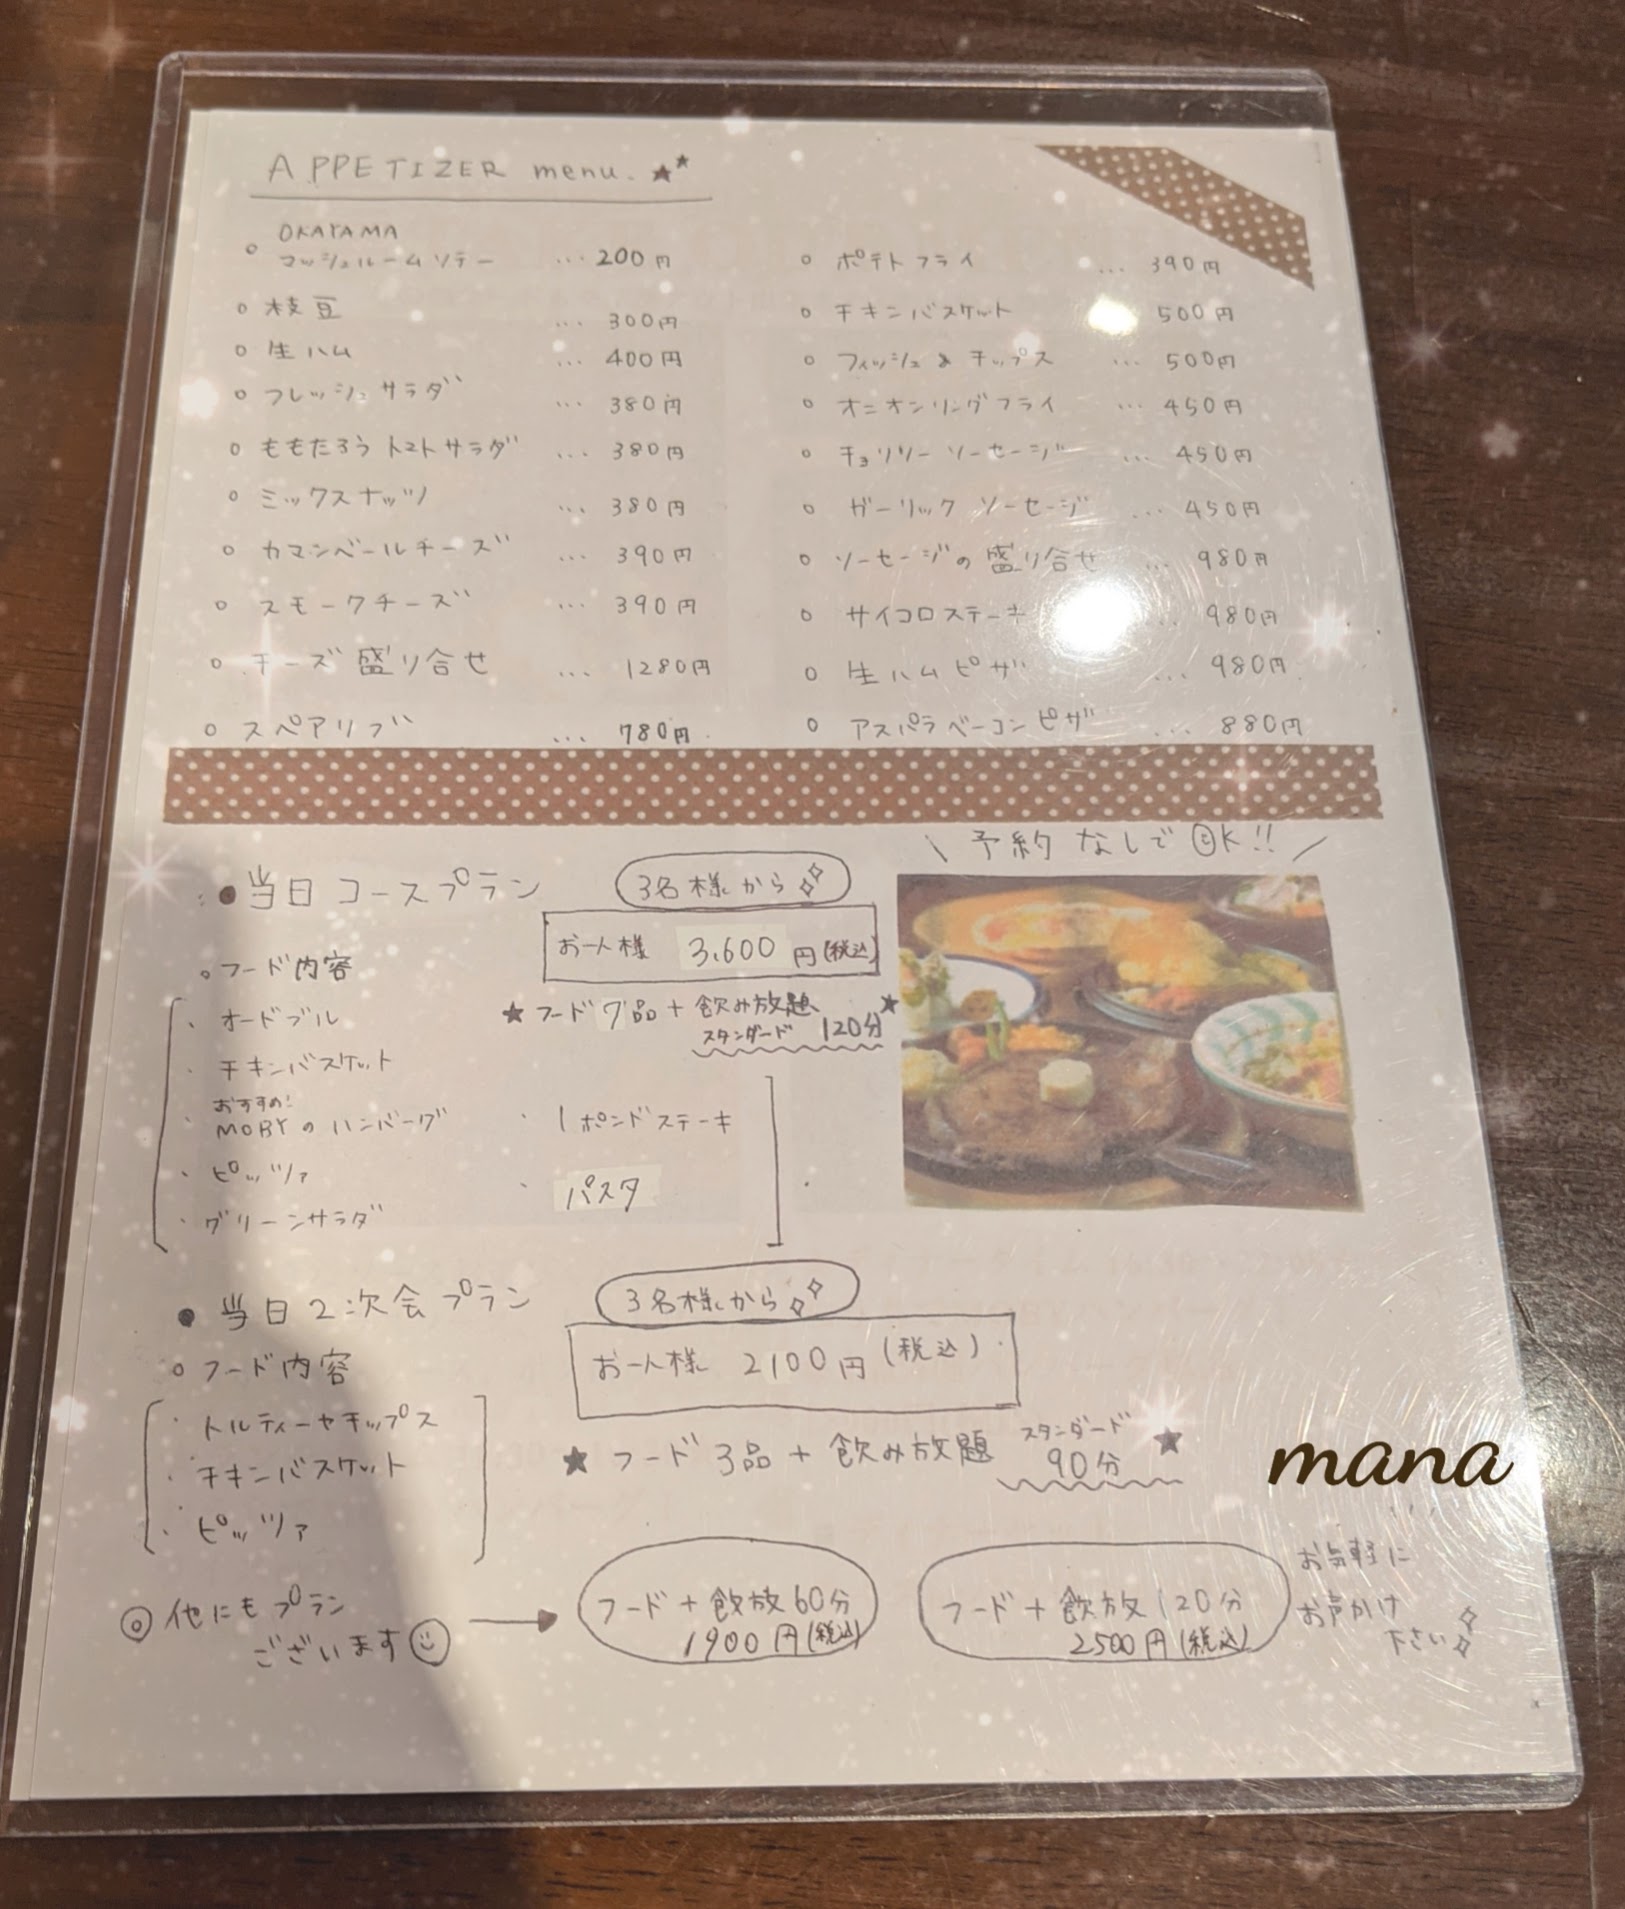 APPETIZER menu.
OKAYAMA
マッシュルームソテー … 200円
枝豆 … 300円
生ハム … 400円
フレッシュサラダ … 380円
ももたろうトマトサラダ … 380円
ミックスナッツ … 380円
カマンベールチーズ … 390円
スモークチーズ … 390円
チーズ盛り合せ … 1280円
スペアリブ … 780円
ポテトフライ … 390円
チキンバスケット 500円
フィッシュ&チップス … 500円
オニオンリングフライ … 450円
チョリソーソーセージ … 450円
ガーリックソーセージ … 450円
ソーセージの盛り合せ … 980円
サイコロステーキ … 980円
生ハムピザ … 980円
アスパラベーコンピザ … 880円
予約なしでOK!!
当日コースプラン
3名様から
お一人様 3,600円(税込)
★フード7品+飲み放題★
スタンダード 120分
フード内容
・オードブル
・チキンバスケット
おすすめ!
・MOBYのハンバーグ
・ピッツァ
・グリーンサラダ
・1ポンドステーキ
・パスタ
当日2次会プラン
3名様から
お一人様 2100円(税込)
★フード3品+飲み放題 スタンダード 90分★
フード内容
・トルティーヤチップス
・チキンバスケット
・ピッツァ
mana
◎他にもプラン
ございます
フード+飲放60分
1900円(税込)
フード+飲放120分
2500円(税込)
お気軽に
お声かけ
下さい